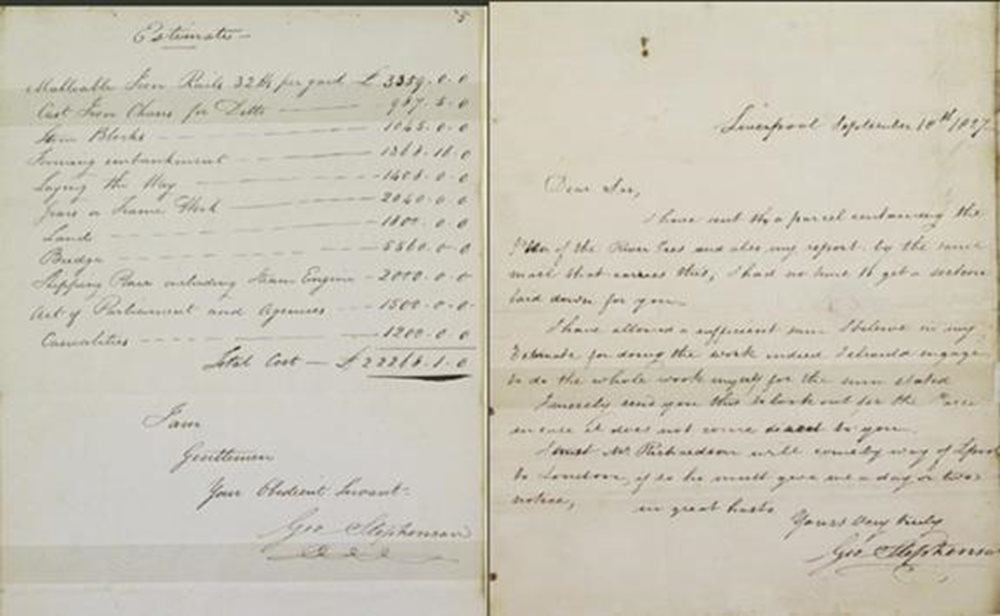 5
Estimate —
Malleable Iron Rails 32 lb per yard £ 3359.0.0
Cast Iron Chairs for Ditto 967.5.0
Stone Blocks 1045.0.0
Forming embankment 1868.16.0
Laying the Way 1405.0.0
or Frame Work 2040.0.0
Land 1600.0.0
Bridge 5560.0.0
Shipping Place including Steam Engine - 2000.0.0
Act of Parliament and Agencies 1500.0.0
Casualities 1200.0.0
Total Cost — £ 22265.1.0
I am
Gentlemen
Your Obedient Servant
Geo Stephenson
Liverpool September 10th 1827
Dear Sir,
I have sent the parcel containing the
Plan of the River Tees and also my report by the same
mail that carries this, I had no time to get a section
laid down for you
I have allowed a sufficient sum I believe in my
Estimate for doing the work indeed I should engage
to do the whole work myself for the sum stated
I merely send you this to look out for the Parcel
in case it does not come direct to you
I trust Mr. Richardson will come by way of Lpool
to London, if so he must give me a day or two's
notice,
in great haste
Yours very truly
Geo Stephenson